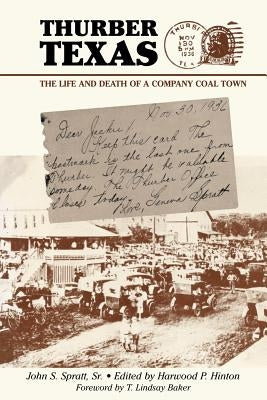 THURBER
TEXAS
THURB
NOV
30
5 PM
1936
THE LIFE AND DEATH OF A COMPANY COAL TOWN
Nov 30, 1936
Dear
Keep this card. The
postmark is the last one from
Thurber. It might be valuable
someday. The Thurber Office
closes today.
Love, Spratt
John S. Spratt, Sr. • Edited by Harwood P. Hinton
Foreword by T. Lindsay Baker